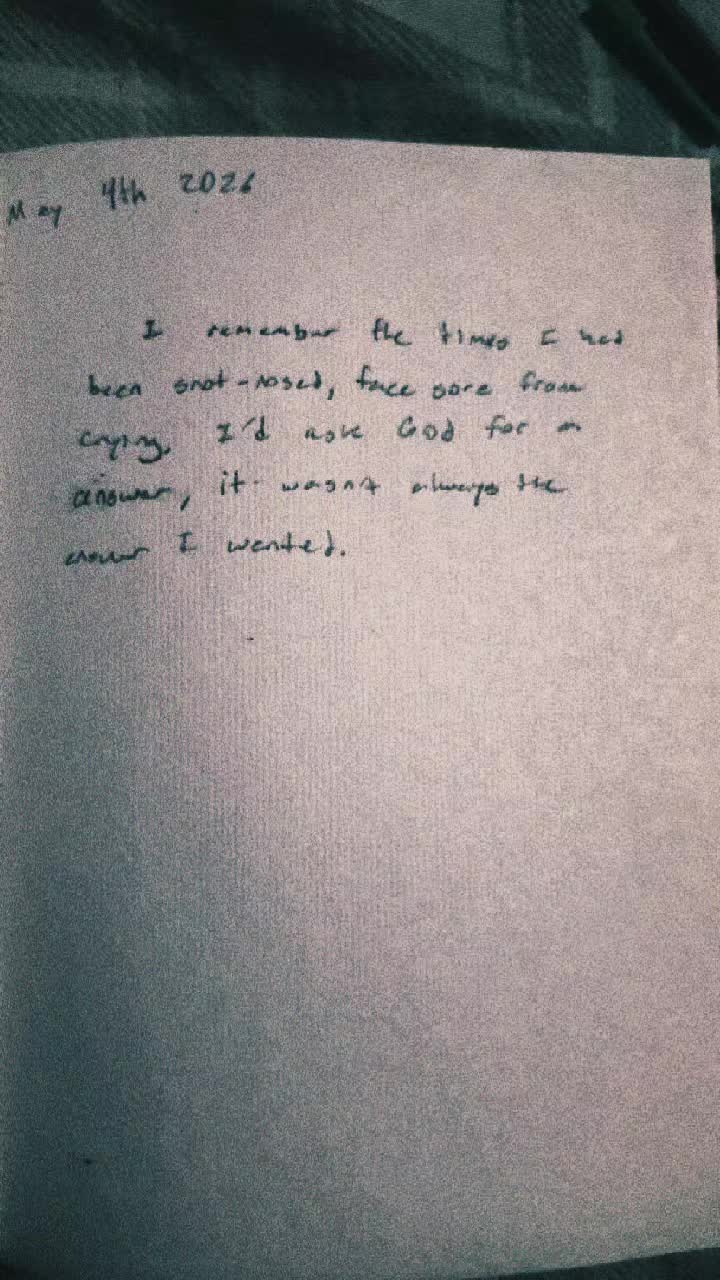 May 4th 2026
I remember the times I had
been snot-nosed, face sore from
crying, I'd ask God for an
answer, it wasn't always the
answer I wanted.